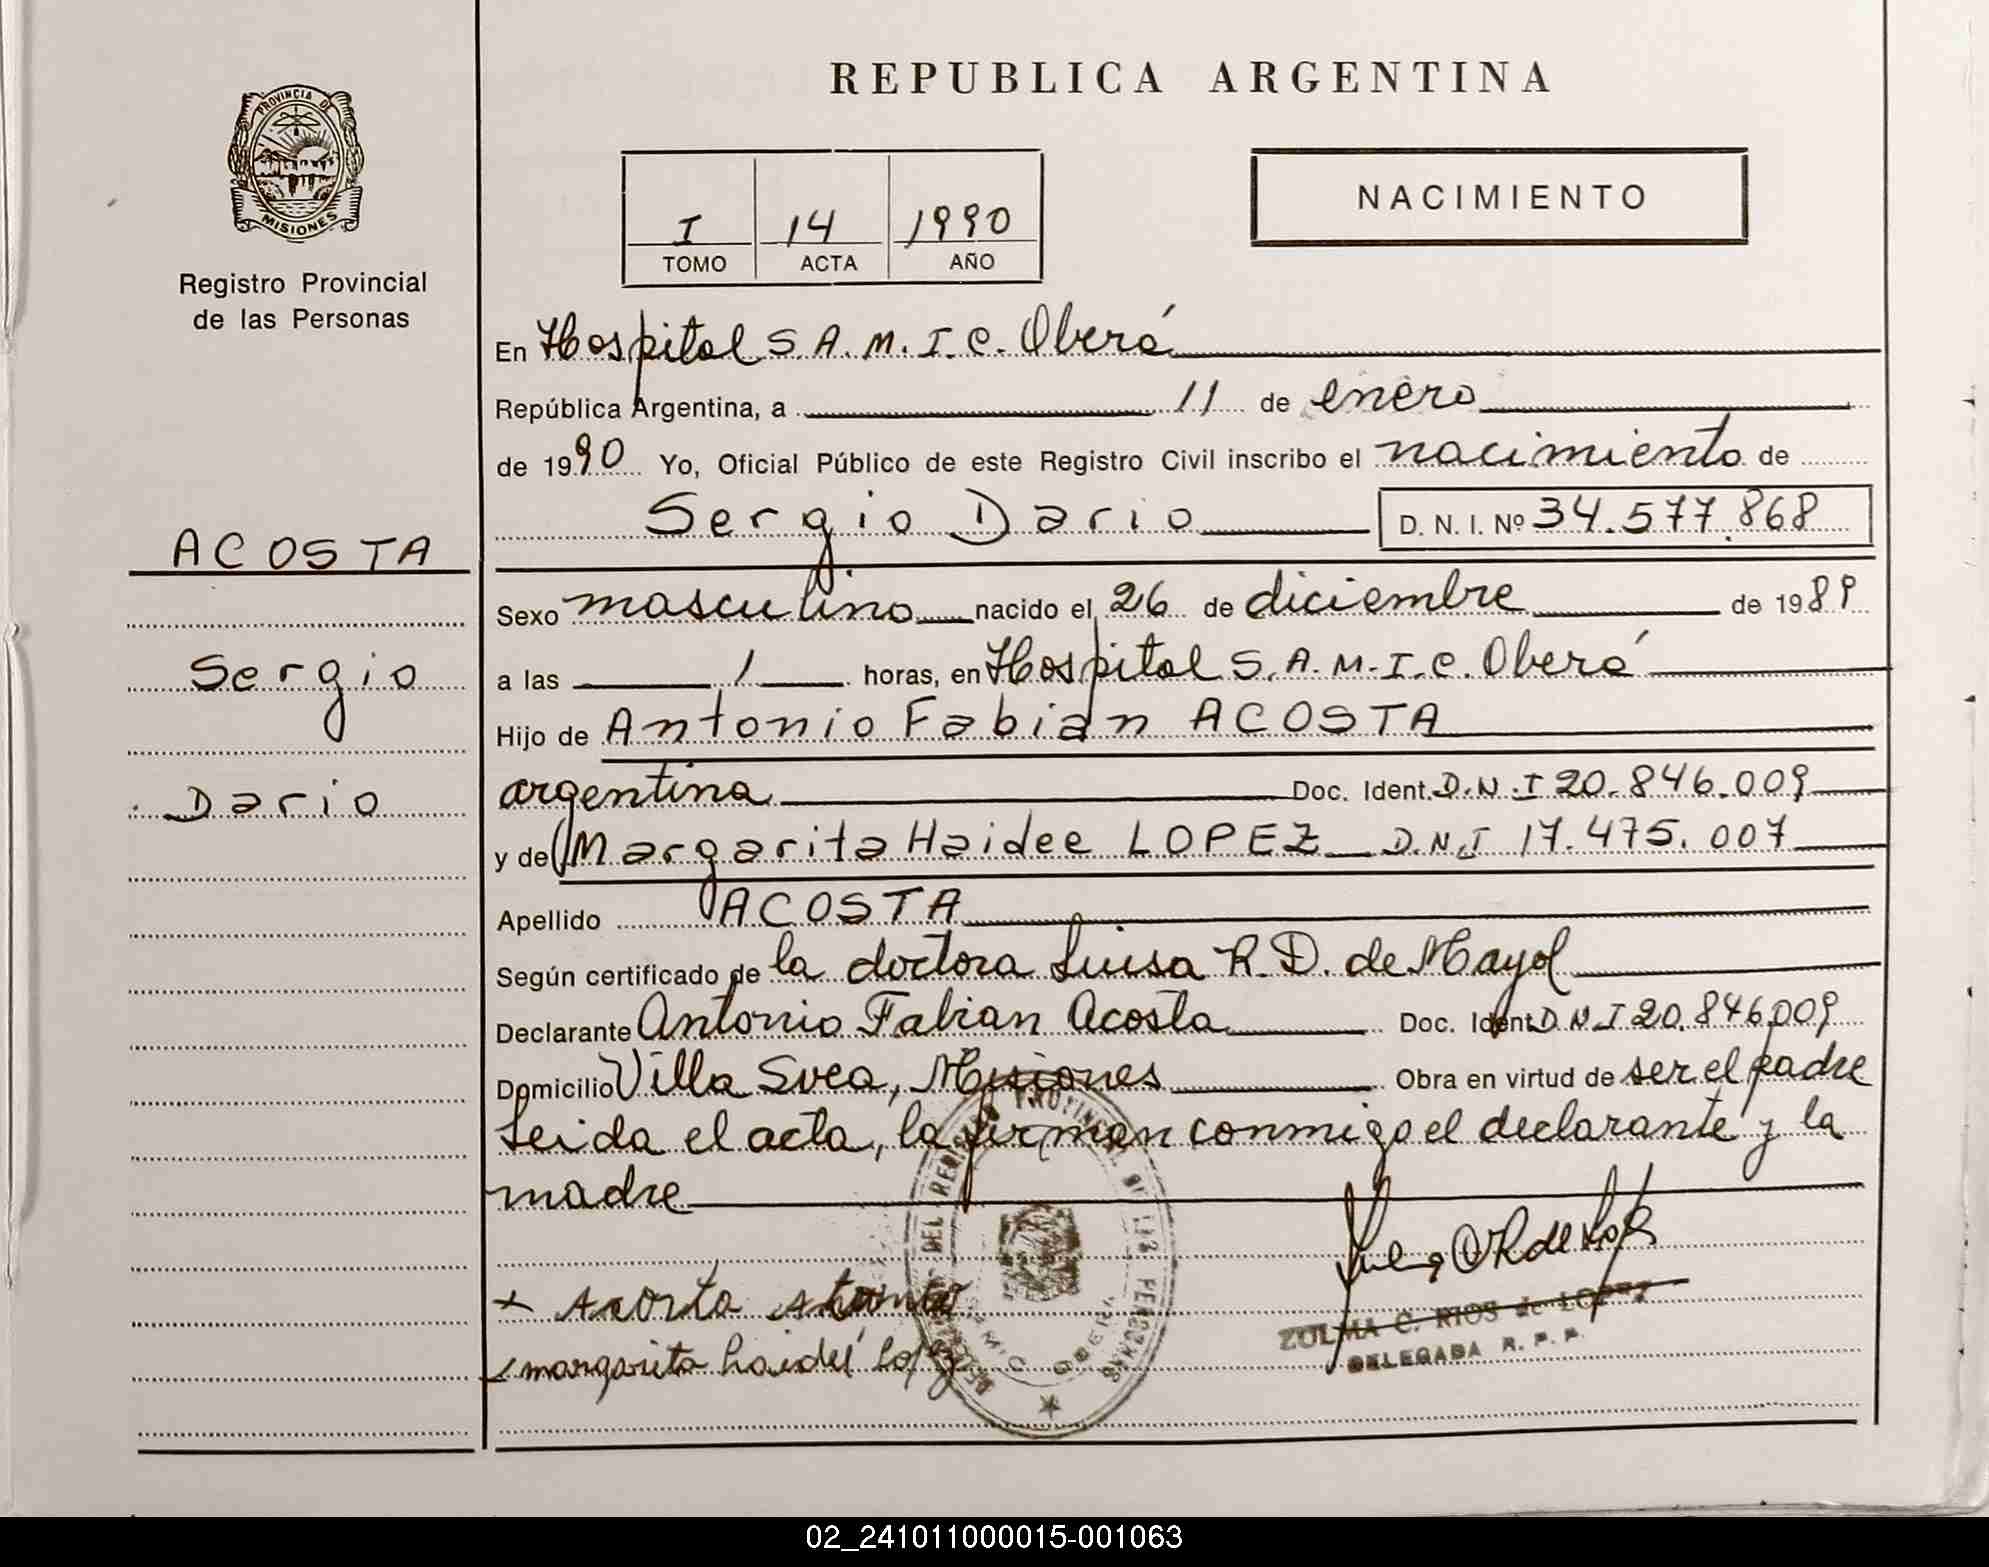 PROVINCIA DE
MISIONES
Registro Provincial
de las Personas
ACOSTA
Sergio
Dario
REPUBLICA ARGENTINA
I 14 1990
TOMO ACTA AÑO
NACIMIENTO
En Hospital S.A.M.I.C. Oberá
República Argentina, a 11 de enero
de 1990 Yo, Oficial Público de este Registro Civil inscribo el nacimiento de
Sergio Dario D. N. I. Nº 34.577.868
Sexo masculino nacido el 26 de diciembre de 1989
a las 1 horas, en Hospital S.A.M.I.C. Oberá
Hijo de Antonio Fabian ACOSTA
argentina Doc. Ident. D.N.I 20.846.009
y de Margarita Haidee LOPEZ D.N.I 17.475.007
Apellido ACOSTA
Según certificado de la doctora Luisa R.D. de Mayol
Declarante Antonio Fabian Acosta Doc. Ident. D.N.I 20.846009
Domicilio Villa Svea, Misiones Obra en virtud de ser el padre
Leida el acta, la firman conmigo el declarante y la
madre
x Acosta
x margarita haideé Lopez
ZULMA C. RIOS de LOPEZ
DELEGADA R. P. P.
02_241011000015-001063